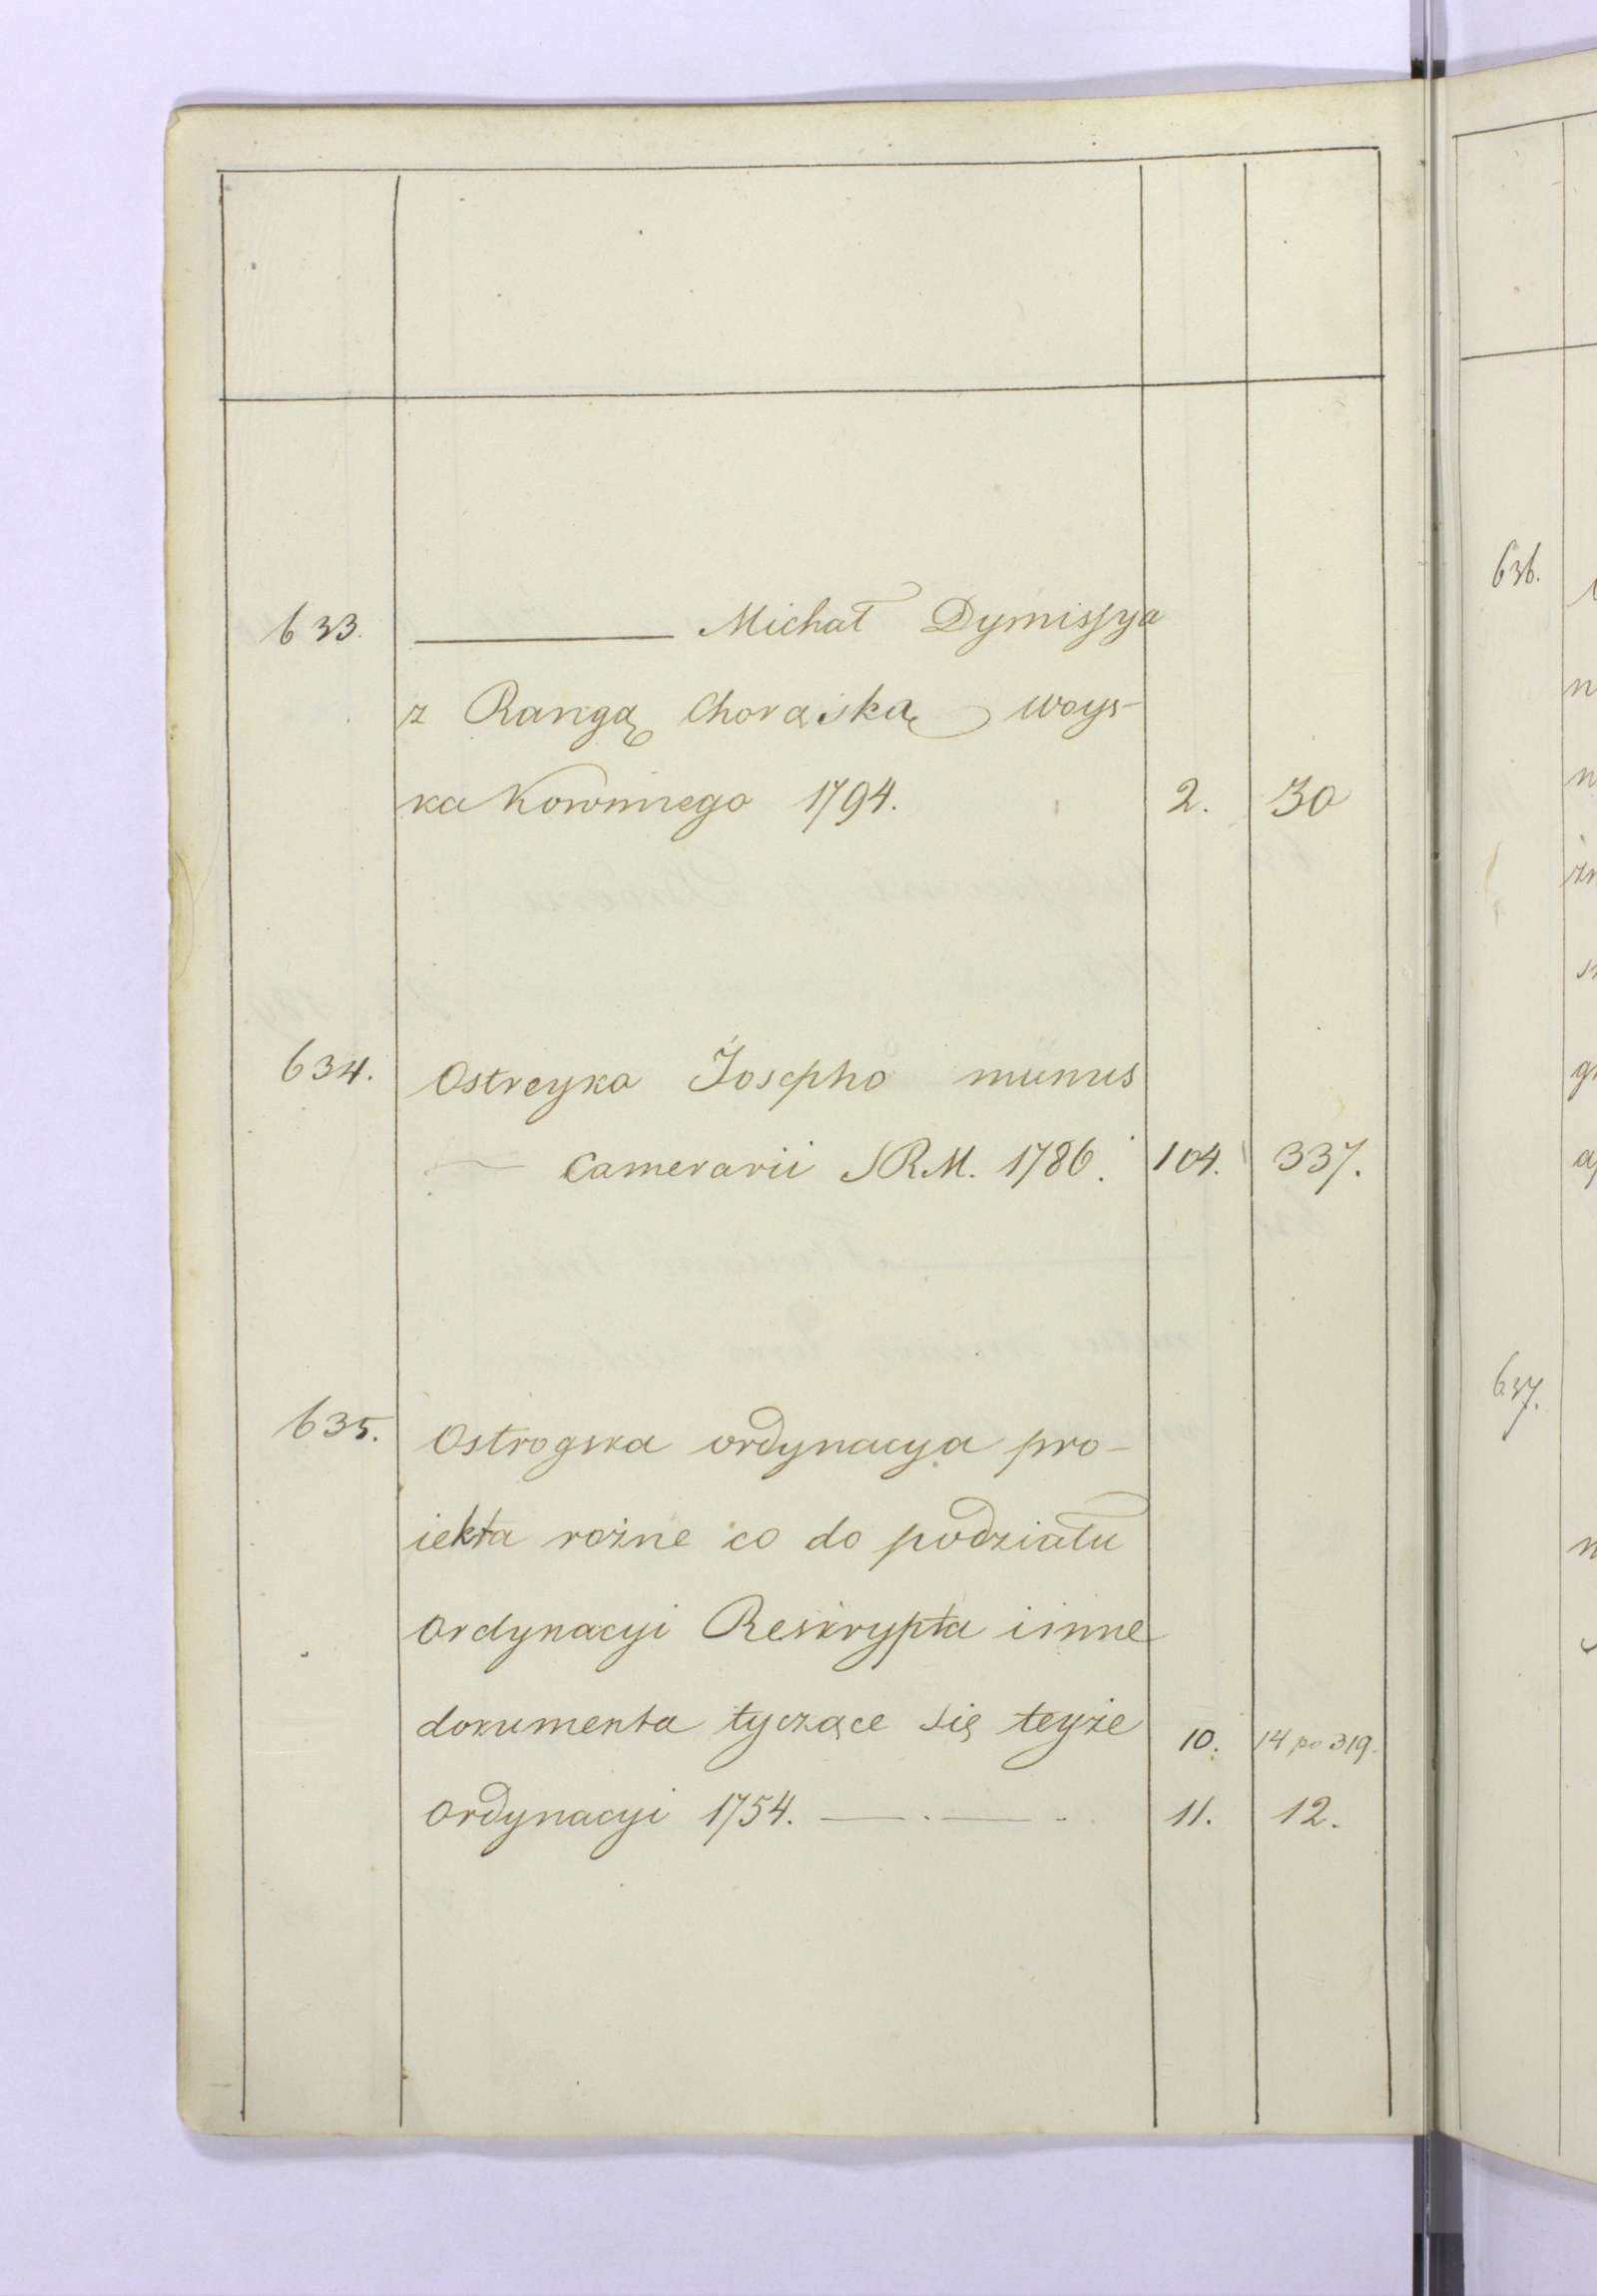 633. ——— Michał Dymissya
z Rangą Chorąską woys-
ka Koronnego 1794. 2. 30
634. Ostreyko Josepho munus
Camerarii SRM. 1786. 104. 337.
635. Ostrogska ordynacya pro-
iekta rożne co do podziału
Ordynacyi Reskrypta i inne
dokumenta tyczące się teyże 10. 14 po 319.
Ordynacyi 1754. —.—. 11. 12.
636.
637.